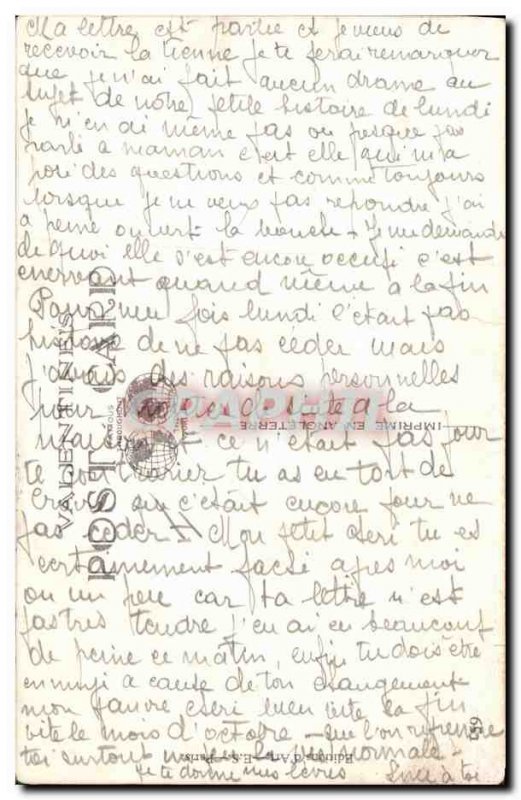 Ma lettre est partie et je viens de
recevoir la tienne je te ferai remarquer
que je n'ai fait aucun drame au
sujet de notre petite histoire de lundi
je n'en ai même pas ou presque pas
parlé a maman c'est elle qui m'a
posé des questions et comme toujours
lorsque je ne veux pas repondre j'ai
a peine ouvert la bouche - Je me demande
de quoi elle s'est encore occupé c'est
enervant quand même a la fin
Pour une fois lundi c'était pas
histoire de ne pas céder mais
j'avais des raisons personnelles
pour la
maison et ce n'était pas pour
te contrarier tu as eu tort de
croire que c'était encore pour ne
pas ceder !! Mon petit cheri tu es
certainement faché apres moi
ou un peu car ta lettre n'est
pas tres tendre j'en ai eu beaucoup
de peine ce matin, enfin tu dois être
ennuyé a cause de ton changement
mon pauvre cheri vite la fin
vite le mois d'octobre - que l'on
toi surtout normale -
je te donne mes lèvres
a toi
VALENTINE'S
POST CARD
FAMOUS THROUGHOUT
IMPRIMÉ EN ANGLETERRE
Editions d'Art - E.S. - Paris